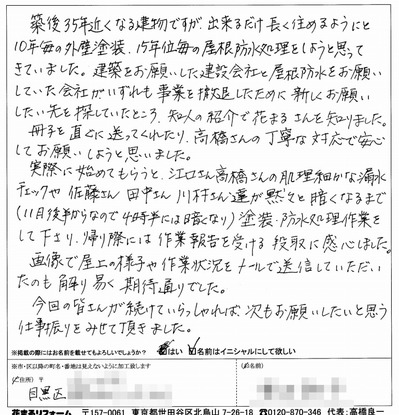 築後35年近くなる建物ですが、出来るだけ長く住めるようにと
10年毎の外壁塗装、15年位毎の屋根防水処理をしようと思って
きていました。建築をお願いした建設会社と屋根防水をお願い
していた会社がいずれも事業を撤退したために新しくお願い
したい先を探していたところ、知人の紹介で花まるさんを知りました。
冊子を直ぐに送ってくれたり、高橋さんの丁寧な対応で安心
してお願いしようと思いました。
実際に始めてもらうと、江口さん高橋さんの肌理細かな漏水
チェックや佐藤さん田中さん川村さん達が黙々と暗くなるまで
(11月後半からなので4時半には暗くなり)塗装、防水処理作業を
して下さり、帰り際には作業報告を受ける段取に感心しました。
画像で屋上の様子や作業状況をメールで送信していただい
たのも解り易く期待通りでした。
今回の皆さんが続けていらっしゃれば次もお願いしたいと思う
仕事振りをみせて頂きました。
※掲載の際にはお名前を載せてもよろしいでしょうか? はい 名前はイニシャルにして欲しい
※市・区以降の町名・番地は見えないように加工致します
<ご住所> 〒 お名前
目黒区
花まるリフォーム 〒157-0061 東京都世田谷区北烏山7-26-18 0120-870-346 代表:高橋良一